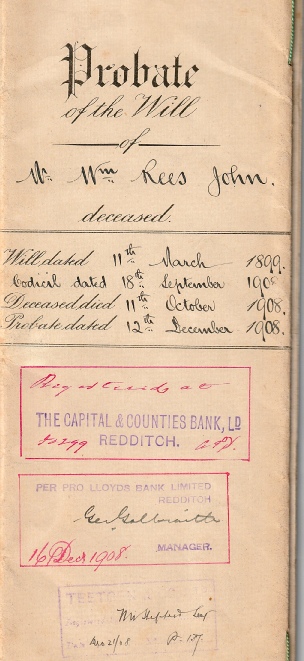 Probate
of the Will
of
Mr. Wm. Rees John.
deceased.
Will dated 11th March 1899.
Codicil dated 18th September 190
Deceased died 11th October 1908.
Probate dated 12th December 1908.
Registered at
THE CAPITAL & COUNTIES BANK, LD
REDDITCH.
PER PRO LLOYDS BANK LIMITED
REDDITCH
Geo Galbraith
16 Decr 1908. MANAGER.